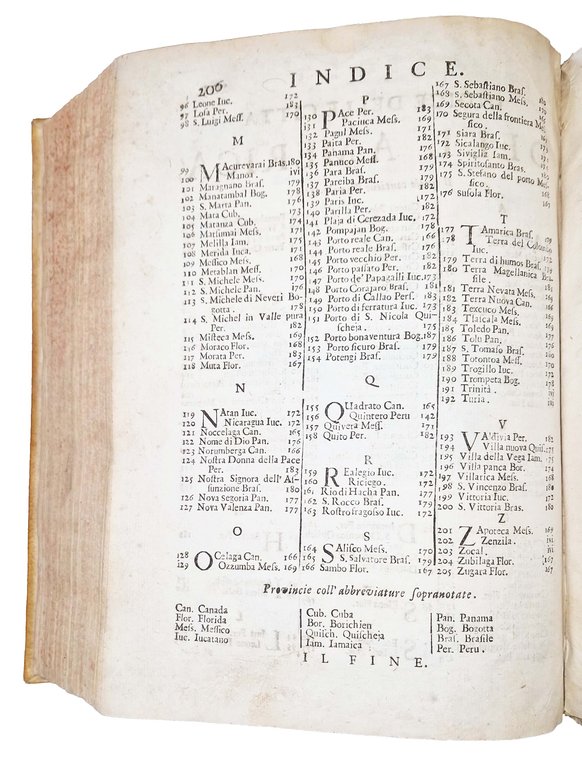 206
INDICE.
96 Leone Iuc. 172
97 Losa Per. 183
98 S. Luigi Mess. 170
M
99 MAcurevarai Bras. 180
100 Manoa. ivi
101 Maragnano Bras. 179
102 Manatambal Bog. 178
103 S. Marta Pan. 176
104 Mata Cub. 173
105 Matanza Cub. 174
106 Matsumai Mess. 171
107 Melilla Iam. 175
108 Merida Iuca. 171
109 Messico Mess. 168
110 Metablan Mess. 170
111 S. Michele Mess. 170
112 S. Michele Pan. 176
113 S. Michele di Neverì Bo-
gotta. 178
114 S. Michel in Valle pura
Per. 182
115 Misteca Mess. 169
116 Moraco Flor. 168
117 Morata Per. 183
118 Muta Flor. 167
N
119 NAtan Iuc. 172
120 Nicaragua Iuc. 172
121 Noccelaga Can. 165
122 Nome di Dio Pan. 176
123 Norumberga Can. 166
124 Nostra Donna della Pace
Per. 183
125 Nostra Signora dell' As-
sunzione Bras. 180
126 Nova Segoria Pan. 177
127 Nova Valenza Pan. 177
O
128 OCelaga Can. 166
129 Ozzumba Mess. 169
P
130 PAce Per. 183
131 Paciuca Mess. 169
132 Pagul Mess. 171
133 Paita Per. 182
134 Panama Pan. 176
135 Panuco Mess. 168
136 Para Bras. 179
137 Pareiba Bras. 179
138 Paria Per. 182
139 Paris Iuc. 172
140 Parilla Per. 182
141 Plaja di Cerezada Iuc. 172
142 Pompajan Bog. 178
143 Porto reale Can. 166
144 Porto reale Bras. 179
145 Porto vecchio Per. 182
146 Porto passato Per. 182
147 Porto de' Papazalli Iuc. 173
148 Porto Corajaro Bras. 181
149 Porto di Callao Pers. 183
150 Porto di ferratura Iuc. 173
151 Porto di S. Nicola Qui-
scheja. 175
152 Porto bonaventura Bog. 187
153 Porto sicuro Bras. 179
154 Potengi Bras. 179
Q
155 QUadrato Can. 165
156 Quintero Peru 142
157 Quivera Mess. 171
158 Quito Per. 182
R
159 REalegio Iuc. 172
160 Riciego. 172
161 Rio di Hacha Pan. 177
162 S. Rocco Bras. 179
163 Rostro fragosso Iuc. 172
S
164 SAlisco Mess. 170
165 S. Salvatore Bras. 179
166 Sambo Flor. 167
167 S. Sebastiano Bras.
169 S. Sebastiano Mess.
169 Secota Can.
170 Segura della frontiera Mes-
sico.
171 siara Bras.
172 Sicalango Iuc.
173 Siviglia Iam.
174 Spiritosanto Bras.
175 S. Stefano del porto Mes-
sico.
176 susola Flor.
T
177 TAmarica Bras.
178 Terra del
Iuc.
179 Terra di humos Bras.
180 Terra Magellanica Bra-
sile.
181 Terra Nevata Mess.
182 Terra Nuova Can.
183 Texcuco Mess.
184 Tlaicala Mess.
185 Toledo Pan.
186 Tolu Pan.
187 S. Tomaso Bras.
188 Totontoa Mess.
189 Trogillo Iuc.
190 Trompeta Bog.
191 Trinità.
192 Turia.
V
193 VAldivia Per.
194 Villa nuova Quis.
195 Villa della Vega Iam. 175
196 Villa panca Bot. 174
197 Villarica Mess. 168
198 S. Vincenzo Bras.
199 Vittoria Iuc.
200 S. Vittoria Bras.
Z
201 ZApoteca Mess. 169
202 Zenzila. ivi
203 Zocal. ivi
204 Zubilaga Flor. 167
205 Zugara Flor. 167
Provincie coll' abbreviature sopranotate.
Can. Canada
Flor. Florida
Mess. Messico
Iuc. Iucatano
Cub. Cuba
Bor. Borichien
Quisch. Quischeja
Iam. Iamaica
Pan. Panama
Bog. Bogotta
Bras. Brasile
Per. Peru.
IL FINE.